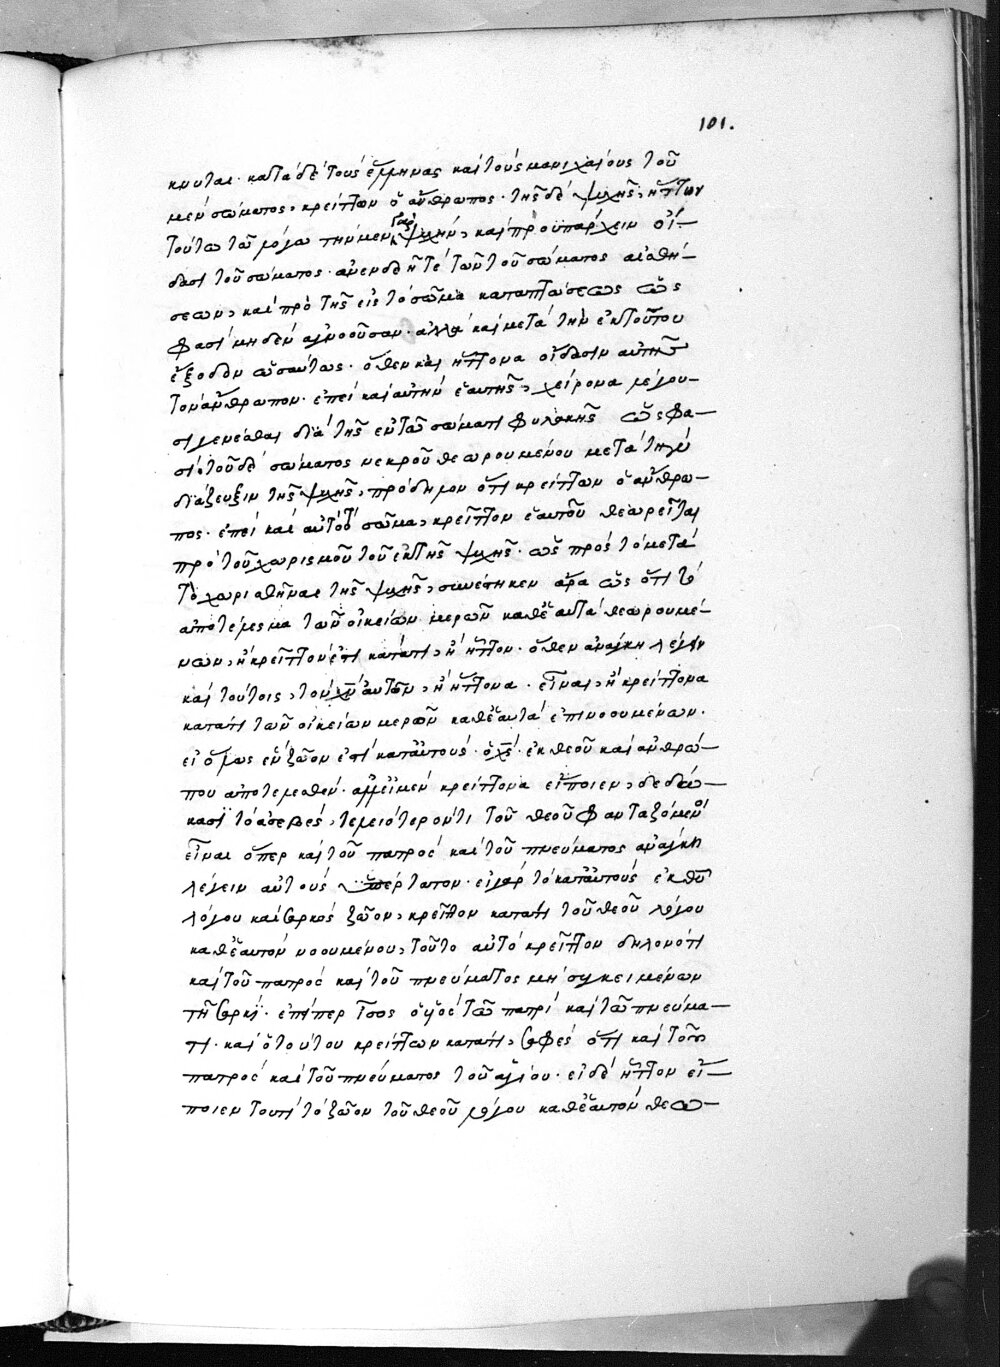 101.
κνυται· κατὰ δὲ τοὺς ἕλληνας καὶ τοὺς μανιχαίους τοῦ
μὲν σώματος, κρείττων ὁ ἄνθρωπος· τῆς δὲ ψυχῆς, ἥττων
τούτω τῶ λόγω τὴν μὲν γὰρ ψυχὴν, καὶ προϋπάρχειν οἴ-
δασι τοῦ σώματος· ἀνενδεῆ τε τῶν τοῦ σώματος αἰσθή-
σεων, καὶ πρὸ τῆς εἰς τὸ σῶμα καταπτώσεως ὥς
φασι μηδὲν ἀγνοοῦσαν· ἀλλὰ καὶ μετὰ τὴν ἐκ τούτου
ἔξοδον ὡσαύτως· ὅθεν καὶ ἥττονα οἴδασιν αὐτῆς
τὸν ἄνθρωπον· ἐπεὶ καὶ αὐτὴν ἑαυτῆς, χείρονα λέγου-
σι γενέσθαι διὰ τῆς ἐν τῶ σώματι φυλακῆς ὥς φα-
σί· τοῦ δὲ σώματος νεκροῦ θεωρουμένου μετὰ τὴν
διάζευξιν τῆς ψυχῆς, πρόδηλον ὅτι κρείττων ὁ ἄνθρω-
πος· ἐπεὶ καὶ αὐτὸ τὸ σῶμα, κρεῖττον ἑαυτοῦ θεωρεῖται
πρὸ τοῦ χωρισμοῦ τοῦ ἐκ τῆς ψυχῆς· ὡς πρὸς τὸ μετὰ
τὸ χωρισθῆναι τῆς ψυχῆς, συνέστηκεν ἄρα ὡς ὅτι τὸ
ἀποτέλεσμα τῶν οἰκείων μερῶν καθ' ἑαυτὰ θεωρουμέ-
νων, ἢ κρεῖττον ἐστὶ κατά τι, ἢ ἧττον· ὅθεν ἀνάγκη λέγειν
καὶ τούτοις, τὸν χν̄ αὐτῶν, ἢ ἥττονα· εἶναι, ἢ κρείττονα
κατά τι τῶν οἰκείων μερῶν καθ' ἑαυτὰ ἐπινοουμένων·
εἰ ὅλως ἓν ζῶον ἐστὶ κατ' αὐτοὺς· ὁ χς̄· ἐκ θεοῦ καὶ ἀνθρώ-
που ἀποτελεσθέν· ἀλλ' εἰ μὲν κρείττονα εἴποιεν, δεδώ-
κασι τὸ ἀσεβὲς, τελειότερόν τι τοῦ θεοῦ φανταζόμενοι
εἶναι ὅπερ καὶ τοῦ πατρὸς καὶ τοῦ πνεύματος ἀνάγκη
λέγειν αὐτοὺς ὑπέρτατον· εἰ γὰρ τὸ κατ' αὐτοὺς ἐκ θῡ
λόγου καὶ σαρκὸς ζῶον, κρεῖττον κατά τι τοῦ θεοῦ λόγου
καθ' ἑαυτὸν νοουμένου, τοῦτο αὐτὸ κρεῖττον δηλονότι
καὶ τοῦ πατρὸς καὶ τοῦ πνεύματος μὴ συγκειμένων
τῆ σαρκὶ· ἐπείπερ ἴσος ὁ υἱὸς τῶ πατρὶ καὶ τῶ πνεύμα-
τι· καὶ ὁ τούτου κρείττων κατά τι, σαφὲς ὅτι καὶ τοῦ
πατρὸς καὶ τοῦ πνεύματος τοῦ ἁγίου· εἰ δὲ ἧττον εἴ-
ποιεν τουτὶ τὸ ζῶον τοῦ θεοῦ λόγου καθ' ἑαυτὸν θεω-